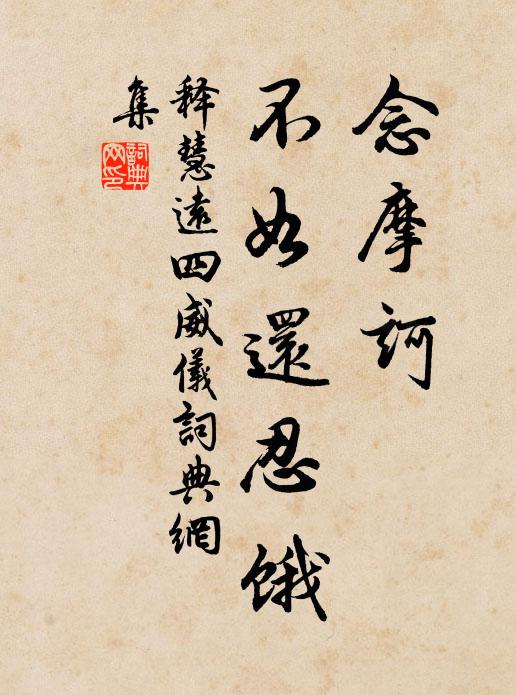 念摩訶
不如還忍餓
释慧遠四威儀詞典網
集
詞典
网印